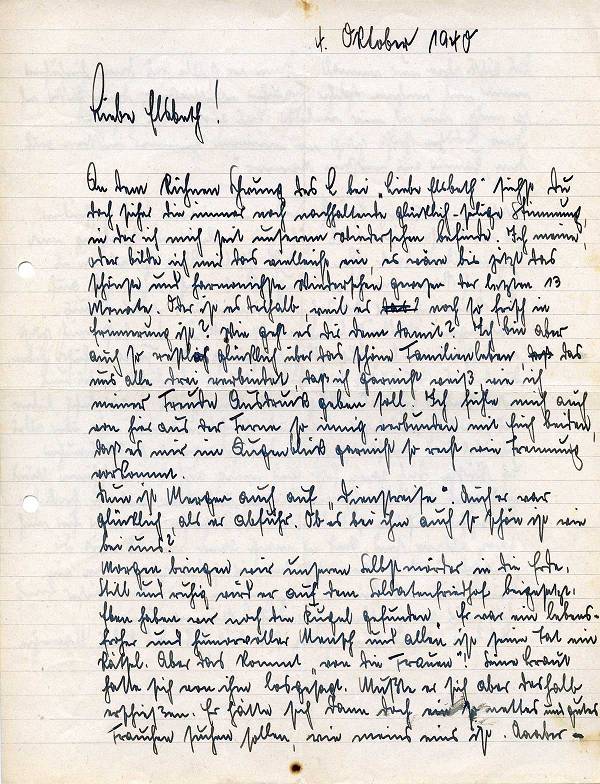 4. Oktober 1940
Liebe Elsbeth!
An dem kühnen Schwung des L bei „Liebe Elsbeth" siehst Du
doch sicher die immer noch nachhaltende glücklich-selige Stimmung,
in der ich mich seit unserem Wiedersehen befinde. Ich meine,
oder bilde ich mir das vielleicht ein, es wäre bis jetzt das
schönste und harmonischste Wiedersehen gewesen der letzten 13
Monate. Oder ist es deshalb, weil es noch so frisch in
Erinnerung ist? Wie geht es dir denn damit? Ich bin aber
auch so restlos glücklich über das schöne Familienleben, das
uns alle drei verbindet, daß ich garnicht weiß, wie ich
meiner Freude Ausdruck geben soll. Ich fühle mich auch
von hier aus der Ferne so innig verbunden mit Euch beiden,
daß es mir im Augenblick garnicht so recht wie Trennung
vorkommt.
Nun ist Mergen auch auf „Dienstreise". Auch er war
glücklich, als er abfuhr. Ob es bei ihm auch so schön ist wie
bei uns?
Morgen bringen wir unseren Selbstmörder in die Erde.
Still und ruhig wird er auf dem Soldatenfriedhof beigesetzt.
Eben haben wir noch die Kugel gefunden. Er war ein lebens-
froher und humorvoller Mensch und allen ist seine Tat ein
Rätsel. Aber das kommt „von die Frauen"! Seine Braut
hatte sich von ihm losgesagt. Mußte er sich aber deshalb
erschießen. Er hätte sich dann doch ein so nettes und gutes
Frauchen suchen sollen, wie meins eins ist. Aaaber –